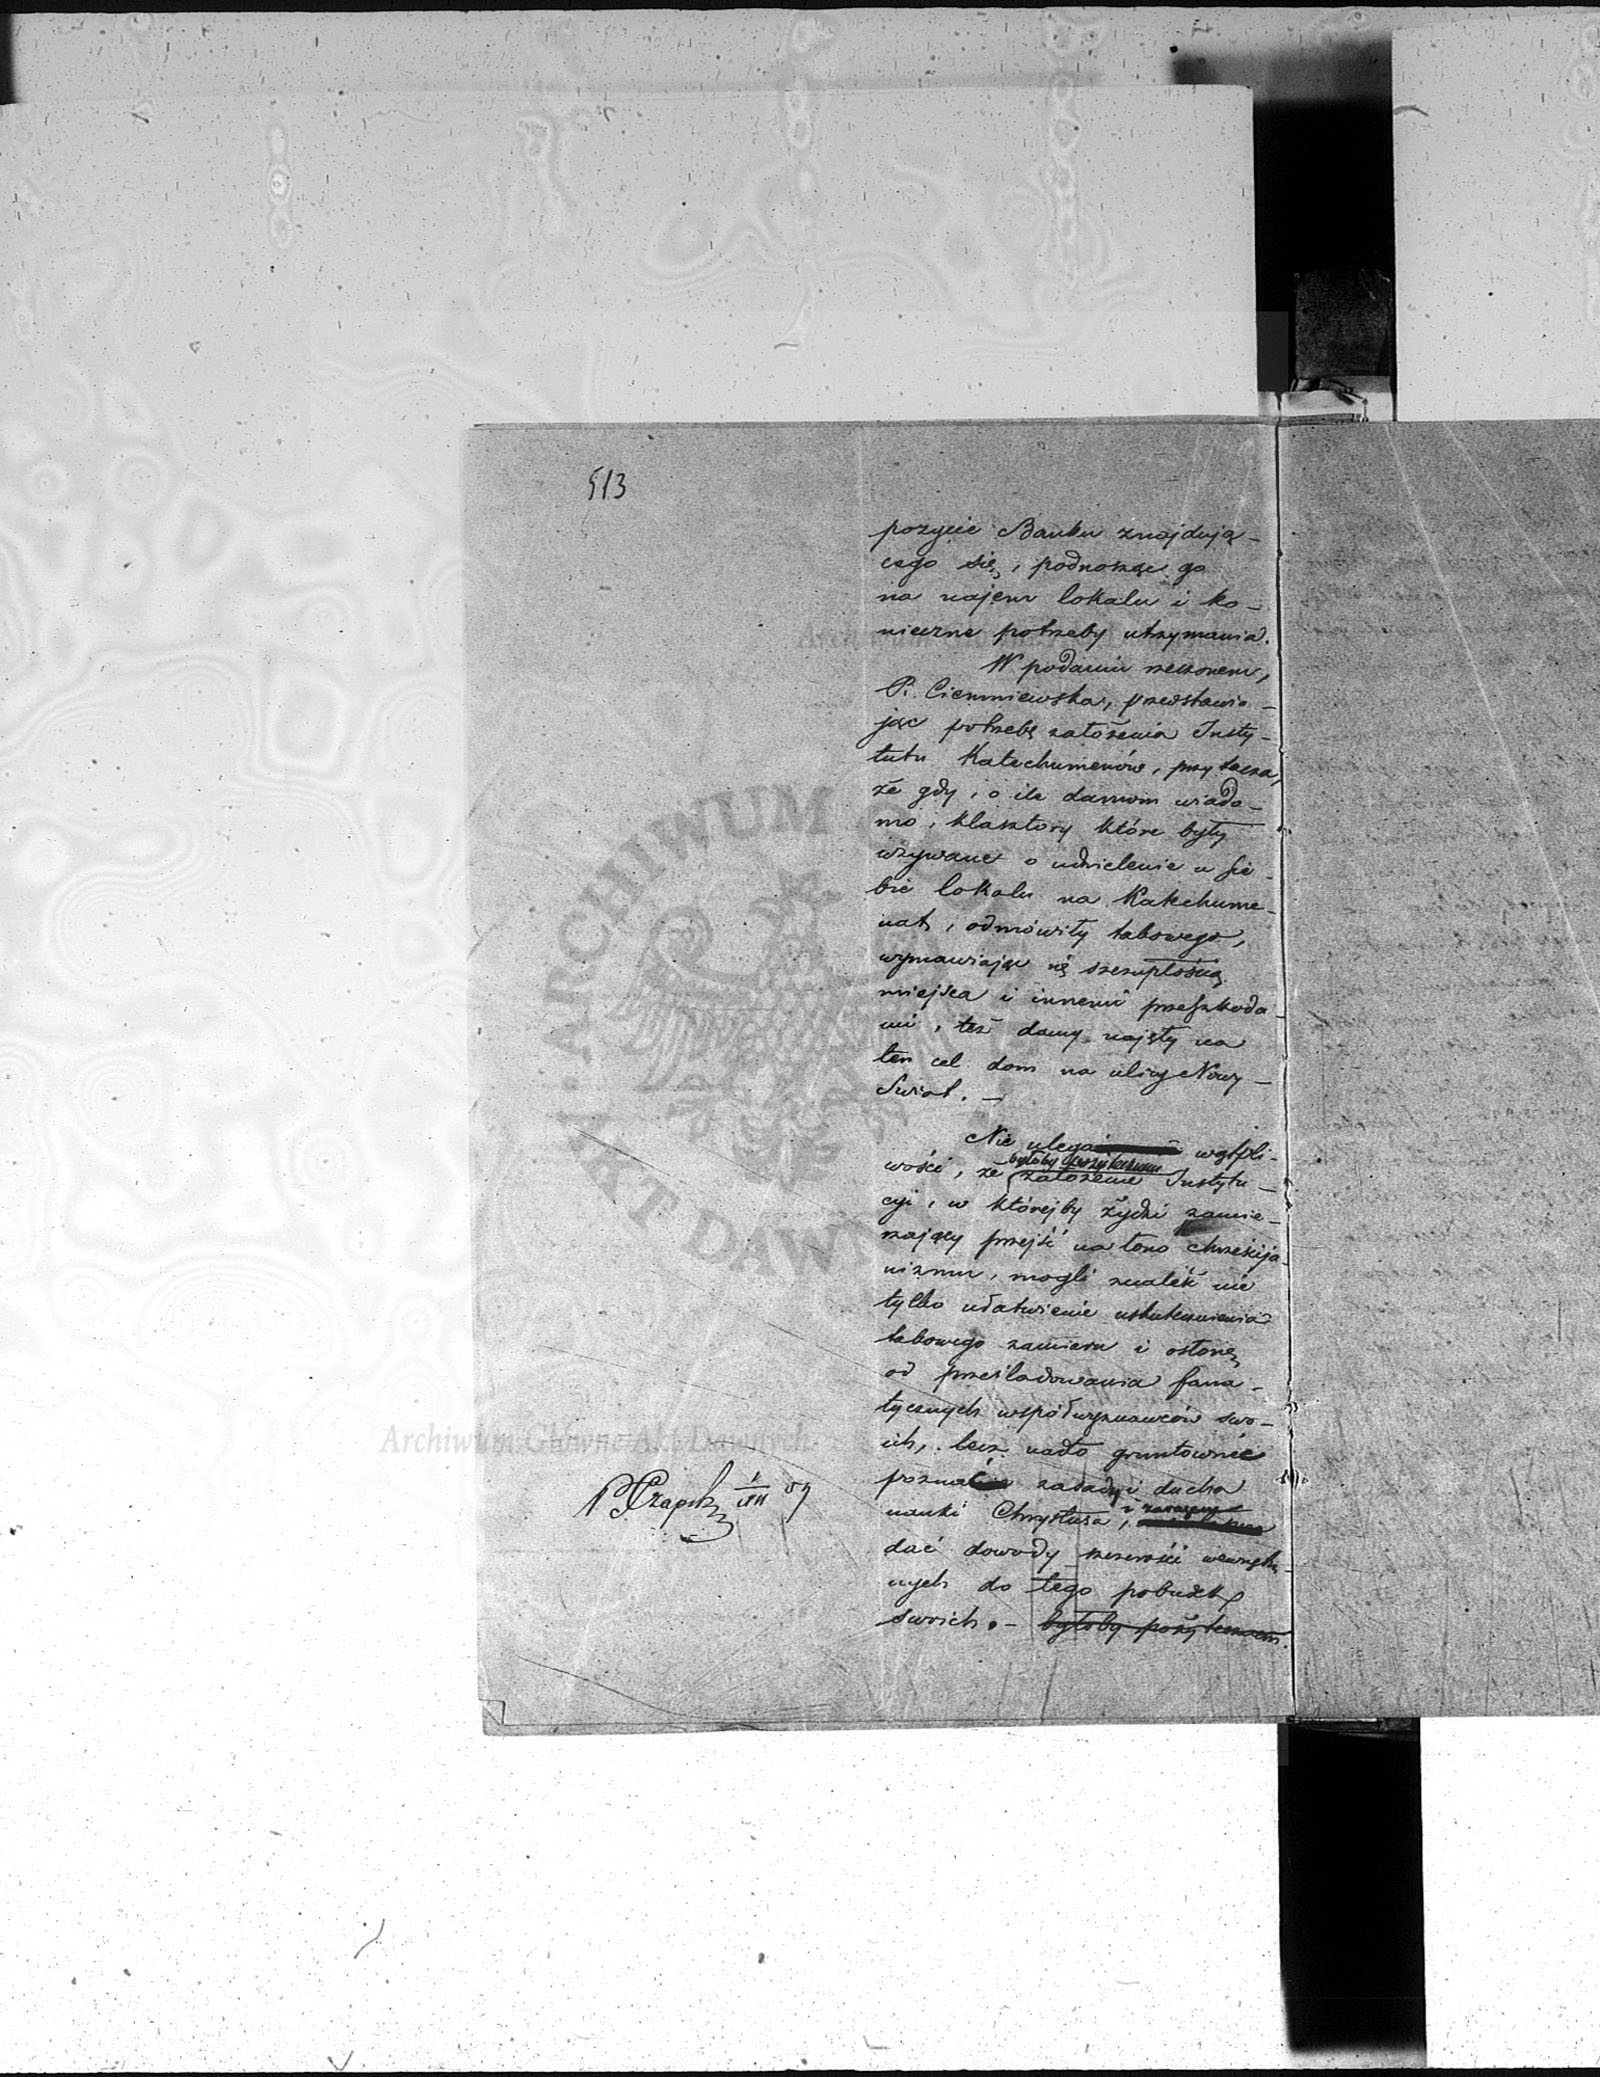 513
pozycie Banku znajdują-
cego się, podnosząc go
na najem lokalu i ko-
nieczne potrzeby utrzymania.
W podaniu rzeczonem,
P. Ciemniewska, przedstawia-
jąc potrzebę założenia Insty-
tutu Katechumenów, przytacza,
że gdy, o ile damom wiado-
mo, klasztory które były
wzywane o udzielenie u sie-
bie lokalu na Katechume-
nat, odmówiły takowego,
wymawiając się szczupłością
miejsca i innemi przeszkoda-
mi, też damy najęły na
ten cel dom na ulicy Nowy-
Świat. —
Nie ulega wątpli-
wości, że założenie Instytu-
byłoby pożytecznem
cyi, w którejby żydzi zamie-
rzający przejść na łono chrześcija-
nizmu, mogli znaleźć nie
tylko ułatwienie uskutecznienia
takowego zamiaru i osłonę
od prześladowania fana-
tycznych współwyznawców swo-
ich, lecz nadto gruntownie
poznać zasady i ducha
nauki Chrystusa, i zarazem
dać dowody szczerości wewnętrz-
nych do tego pobudek
swoich. — byłoby pożytecznem.
VIII 59
Archiwum Główne Akt Dawnych
ARCHIWUM
AKT DAWN